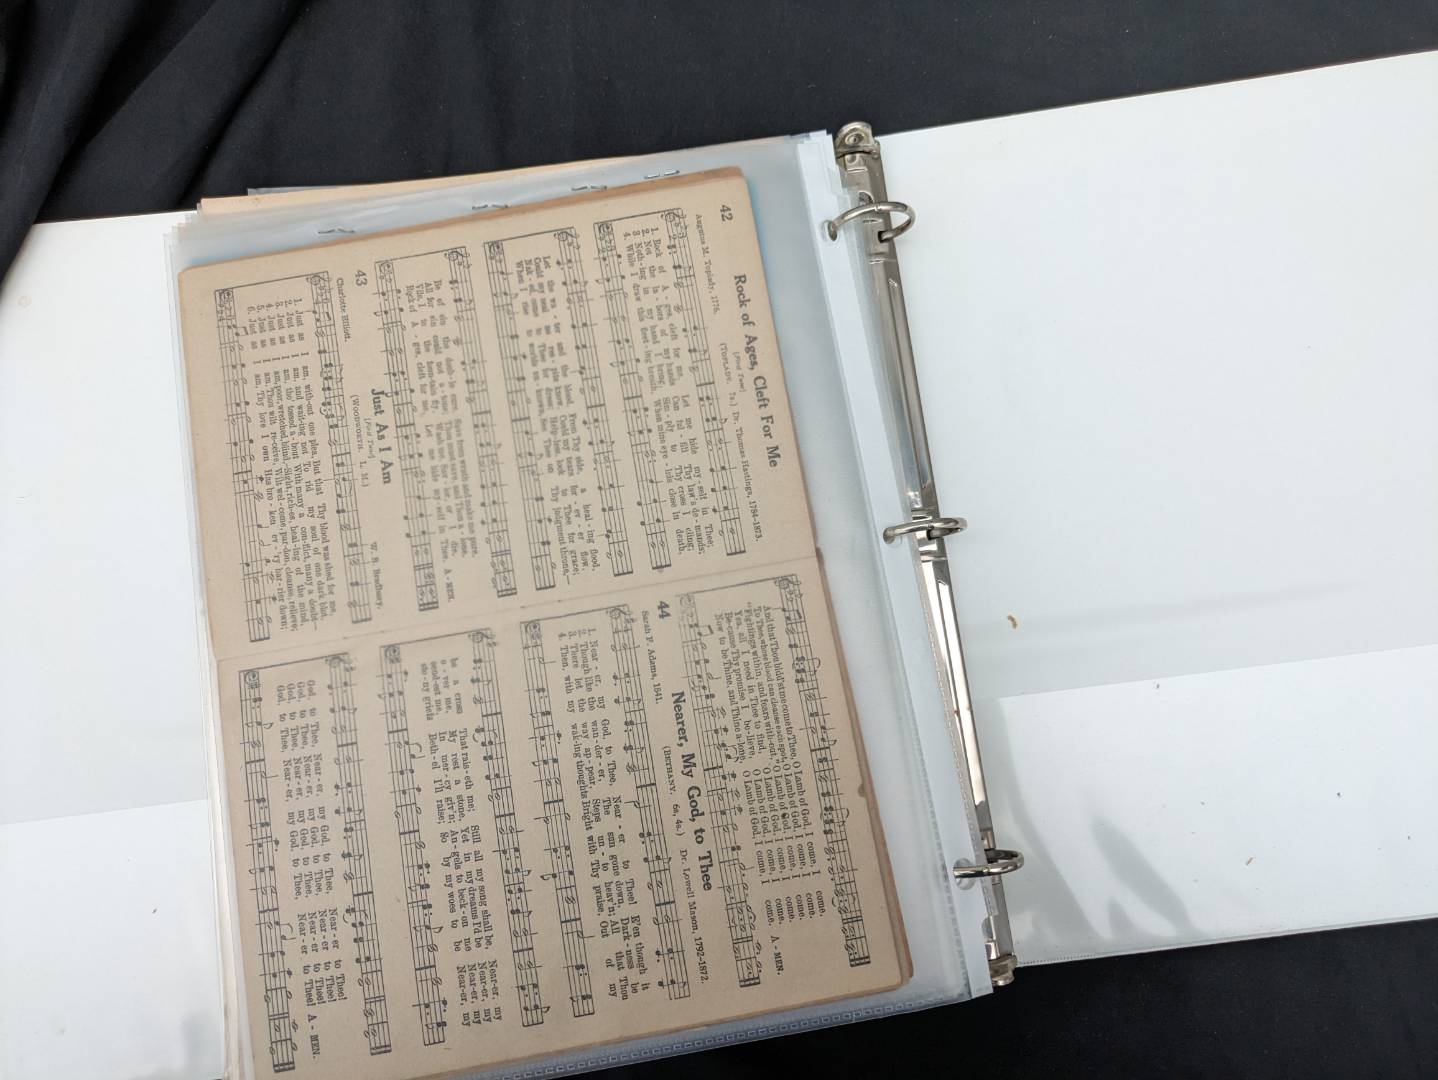 42
Rock of Ages, Cleft For Me
[First Tune]
Augustus M. Toplady, 1776.
(TOPLADY. 7s.) Dr. Thomas Hastings, 1784-1873.
1. Rock of A - ges, cleft for me, Let me hide my - self in Thee;
2. Not the la - bors of my hands Can ful - fill Thy law's de - mands;
3. Noth - ing in my hand I bring; Sim - ply to Thy cross I cling;
4. While I draw this fleet - ing breath, When mine eye - lids close in death,
Let the wa - ter and the blood, From Thy side, a heal - ing flood,
Could my zeal no res - pite know, Could my tears for - ev - er flow,
Nak - ed, come to Thee for dress; Help - less, look to Thee for grace;
When I rise to worlds un - known, See Thee on Thy judgment throne,—
Be of sin the doub - le cure, Save from wrath and make me pure.
All for sin could not a - tone; Thou must save, and Thou a - lone.
Vile, I to the foun - tain fly, Wash me, Sav - ior, or I die.
Rock of A - ges, cleft for me, Let me hide my - self in Thee. A - MEN.
43
Just As I Am
[First Tune]
Charlotte Elliott.
(WOODWORTH. L. M.)
W. B. Bradbury.
1. Just as I am, with - out one plea, But that Thy blood was shed for me,
2. Just as I am, and wait - ing not To rid my soul of one dark blot,
3. Just as I am, tho' tossed a - bout With many a con - flict, many a doubt—
4. Just as I am, poor, wretched, blind,—Sight, rich - es, heal - ing of the mind,
5. Just as I am, Thou wilt re - ceive, Wilt wel - come, par - don, cleanse, relieve;
6. Just as I am, Thy love I own Has bro - ken ev - 'ry bar - rier down;
And that Thou bidd'st me come to Thee, O Lamb of God, I come, I come.
To Thee, whose blood can cleanse each spot, O Lamb of God, I come, I come.
"Fightings within, and fears with - out," O Lamb of God, I come, I come.
Yea, all I need in Thee to find, O Lamb of God, I come, I come.
Be - cause Thy promise I be - lieve, O Lamb of God, I come, I come.
Now to be Thine, and Thine a - lone, O Lamb of God, I come, I come. A - MEN.
44
Nearer, My God, to Thee
Sarah F. Adams, 1841.
(BETHANY. 6s, 4s.) Dr. Lowell Mason, 1792-1872.
1. Near - er, my God, to Thee, Near - er to Thee! E'en though it
2. Though like the wan - der - er, The sun gone down, Dark - ness be
3. There let the way ap - pear, Steps un - to heav'n; All that Thou
4. Then, with my wak - ing thoughts Bright with Thy praise, Out of my
be a cross That rais - eth me; Still all my song shall be, Near - er, my
o - ver me, My rest a stone, Yet in my dreams I'd be Near - er, my
send - est me, In mer - cy giv'n; An - gels to beck - on me Near - er, my
sto - ny griefs Beth - el I'll raise; So by my woes to be Near - er, my
God, to Thee, Near - er, my God, to Thee, Near - er to Thee!
God, to Thee, Near - er, my God, to Thee, Near - er to Thee!
God, to Thee, Near - er, my God, to Thee, Near - er to Thee!
God, to Thee, Near - er, my God, to Thee, Near - er to Thee! A - MEN.